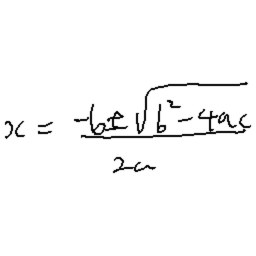 x = \frac{-b ± \sqrt{b^2 - 4ac}}{2a}